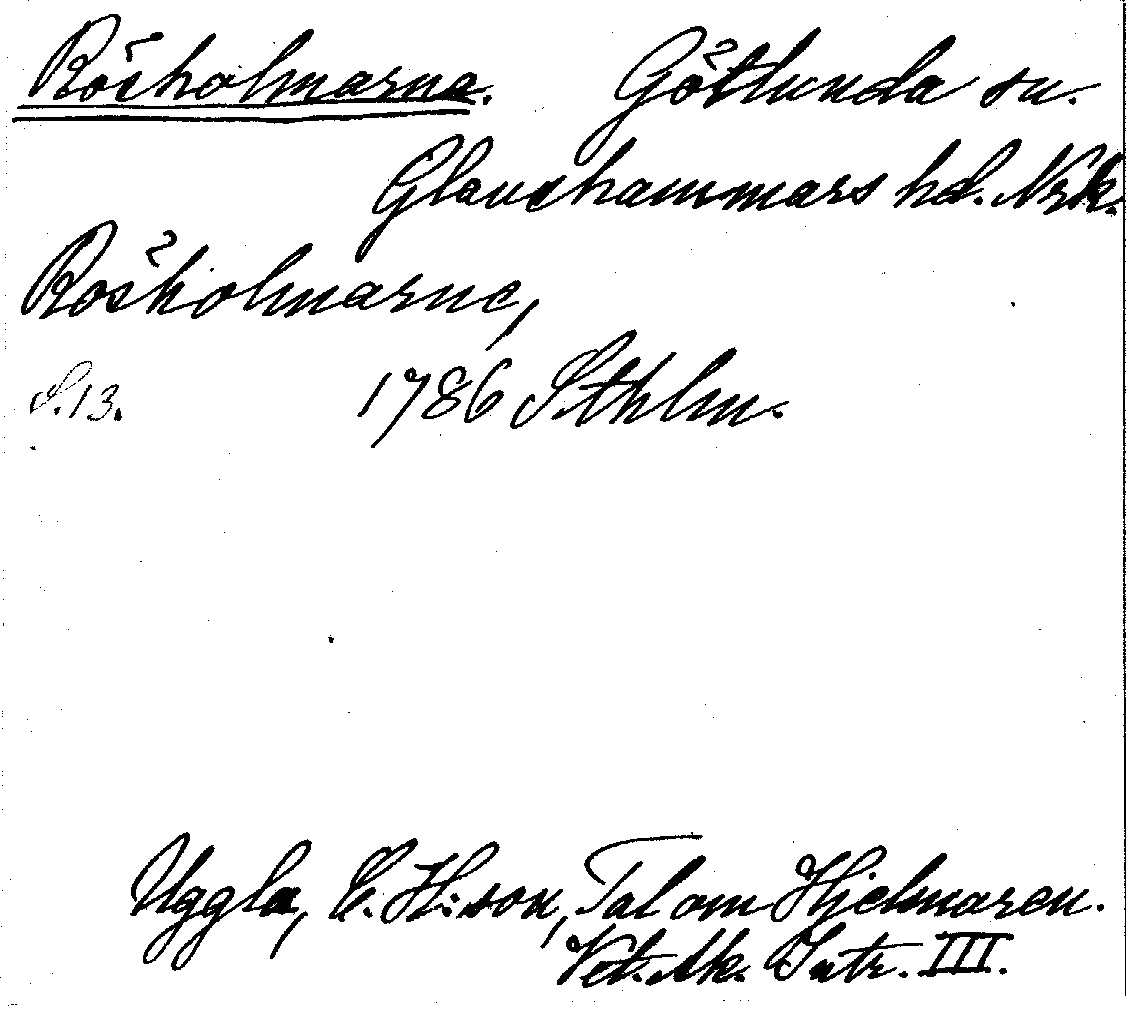 Rösholmarna. Götlunda sn.
Glanshammars hd. Nrk.
Rösholmarne,
S.13. 1786 Sthlm.
Uggla, C. H:son, Tal om Hjelmaren.
Vet. Ak. Intr. III.